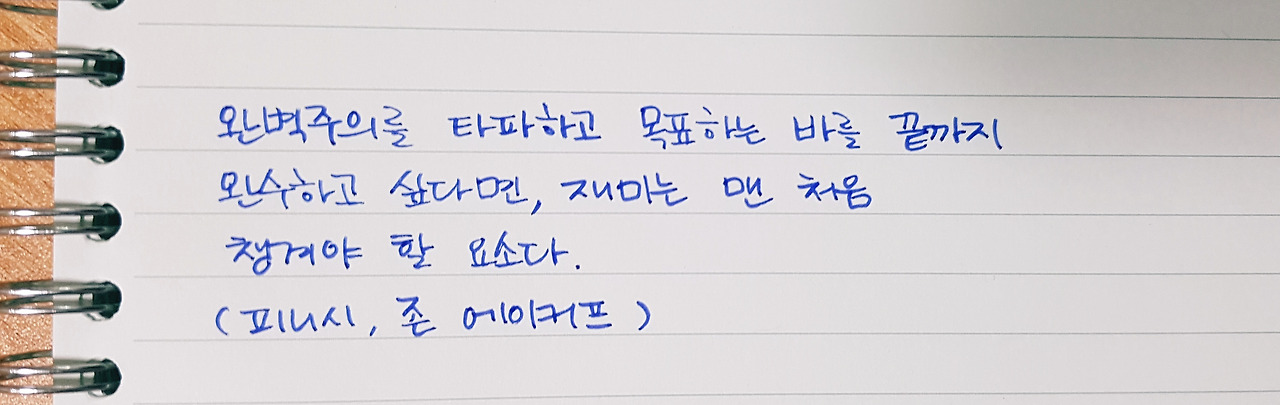 완벽주의를 타파하고 목표하는 바를 끝까지
완수하고 싶다면, 재미는 맨 처음
챙겨야 할 요소다.
(피니시, 존 에이커프)